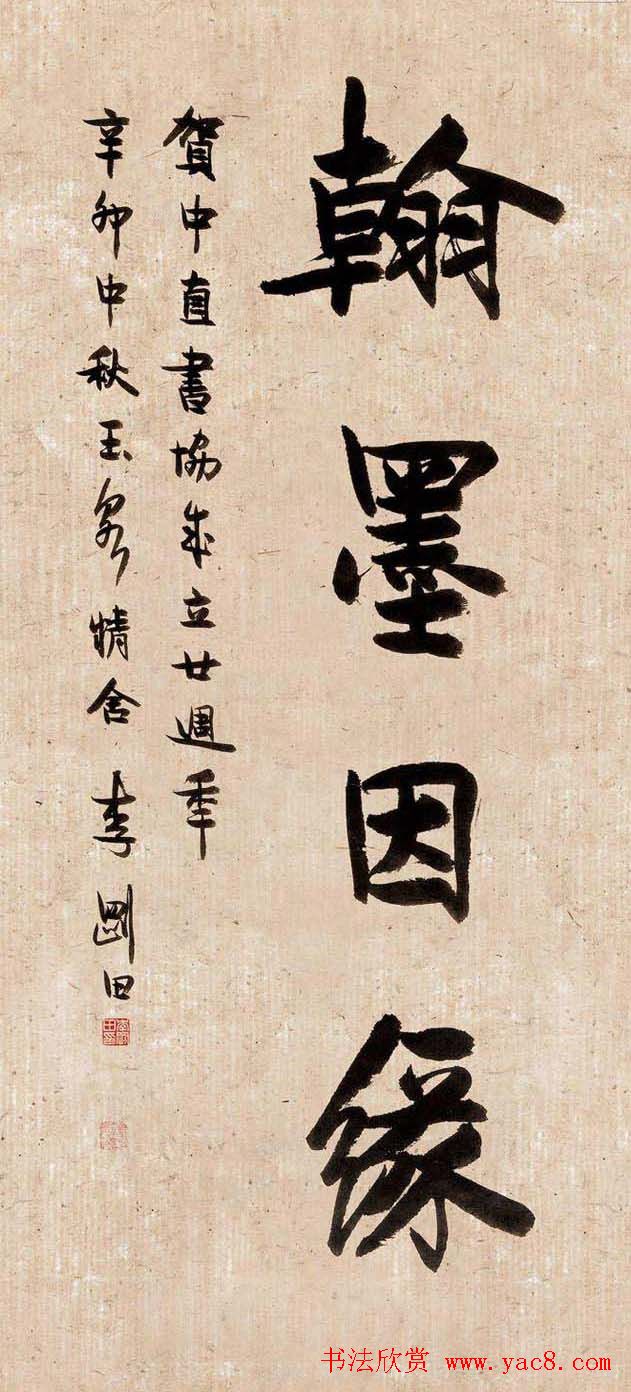 翰墨因緣
賀中直書協成立廿週年
辛卯中秋玉泉精舍李剛田
书法欣赏 www.yac8.com